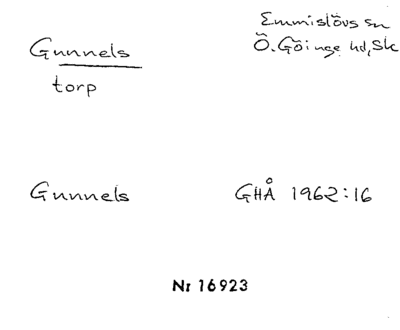 Gunnels
torp
Emmislövs sn
Ö. Göinge hd, Sk
Gunnels
GHÅ 1962:16
Nr 16923